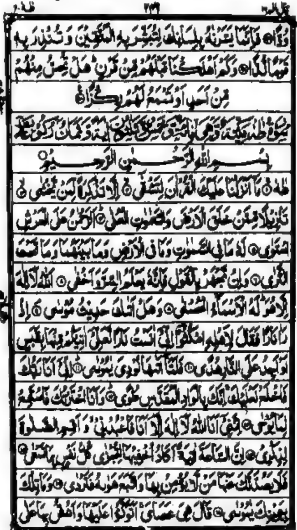 وُدًّا فَإِنَّمَا يَسَّرْنَاهُ بِلِسَانِكَ لِتُبَشِّرَ بِهِ الْمُتَّقِينَ وَتُنْذِرَ بِهِ
قَوْمًا لُدًّا وَكَمْ أَهْلَكْنَا قَبْلَهُمْ مِنْ قَرْنٍ هَلْ تُحِسُّ مِنْهُمْ
مِنْ أَحَدٍ أَوْ تَسْمَعُ لَهُمْ رِكْزًا
بِسْمِ اللهِ الرَّحْمٰنِ الرَّحِيمِ
طه مَا أَنْزَلْنَا عَلَيْكَ الْقُرْآنَ لِتَشْقَى إِلَّا تَذْكِرَةً لِمَنْ يَخْشَى
تَنْزِيلًا مِمَّنْ خَلَقَ الْأَرْضَ وَالسَّمٰوٰتِ الْعُلَى الرَّحْمٰنُ عَلَى الْعَرْشِ
اسْتَوَى لَهُ مَا فِي السَّمٰوٰتِ وَمَا فِي الْأَرْضِ وَمَا بَيْنَهُمَا وَمَا تَحْتَ
الثَّرَى وَإِنْ تَجْهَرْ بِالْقَوْلِ فَإِنَّهُ يَعْلَمُ السِّرَّ وَأَخْفَى اللهُ لَا إِلٰهَ
إِلَّا هُوَ لَهُ الْأَسْمَاءُ الْحُسْنَى وَهَلْ أَتَاكَ حَدِيثُ مُوسَى إِذْ
رَأَى نَارًا فَقَالَ لِأَهْلِهِ امْكُثُوا إِنِّي آنَسْتُ نَارًا لَعَلِّي آتِيكُمْ مِنْهَا بِقَبَسٍ
أَوْ أَجِدُ عَلَى النَّارِ هُدًى فَلَمَّا أَتَاهَا نُودِيَ يٰمُوسَى إِنِّي أَنَا رَبُّكَ
فَاخْلَعْ نَعْلَيْكَ إِنَّكَ بِالْوَادِ الْمُقَدَّسِ طُوًى وَأَنَا اخْتَرْتُكَ فَاسْتَمِعْ
لِمَا يُوحَى إِنَّنِي أَنَا اللهُ لَا إِلٰهَ إِلَّا أَنَا فَاعْبُدْنِي وَأَقِمِ الصَّلٰوةَ
لِذِكْرِي إِنَّ السَّاعَةَ آتِيَةٌ أَكَادُ أُخْفِيهَا لِتُجْزَى كُلُّ نَفْسٍ بِمَا تَسْعَى
فَلَا يَصُدَّنَّكَ عَنْهَا مَنْ لَا يُؤْمِنُ بِهَا وَاتَّبَعَ هَوَاهُ فَتَرْدَى وَمَا تِلْكَ
بِيَمِينِكَ يٰمُوسَى قَالَ هِيَ عَصَايَ أَتَوَكَّأُ عَلَيْهَا وَأَهُشُّ بِهَا عَلَى